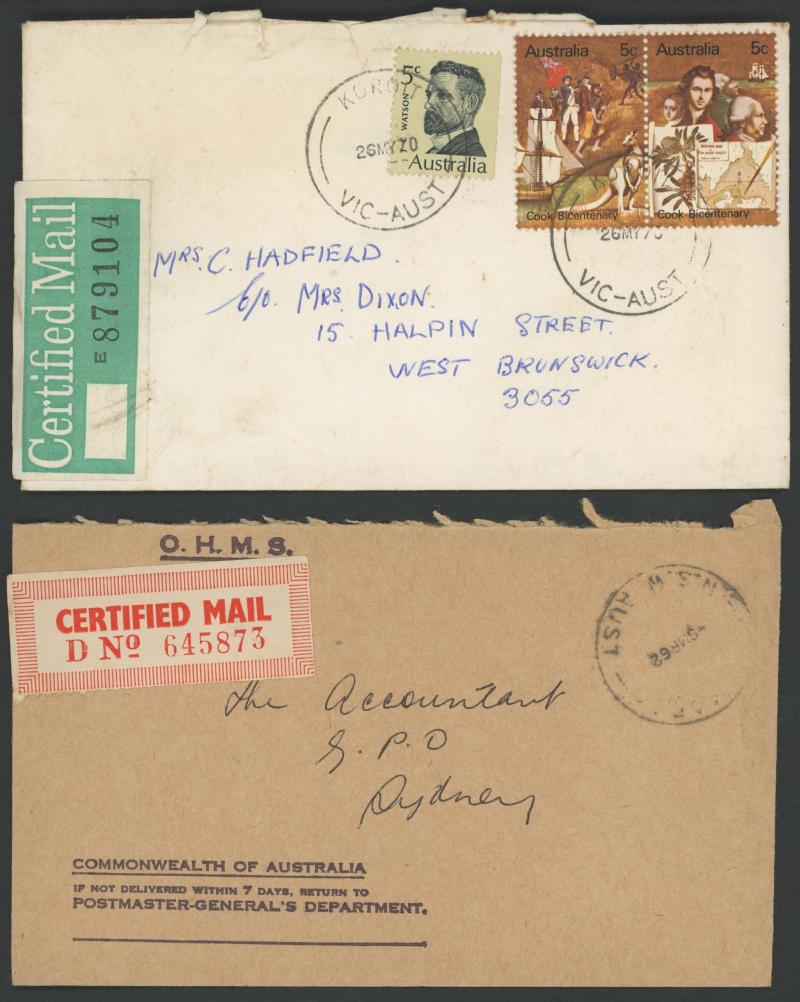 5c
WATSON
Australia
Australia 5c
Cook Bicentenary
Australia 5c
Cook Bicentenary
KOROIT
26MY70
VIC-AUST
26MY7
VIC-AUST
Certified Mail
E 879104
MRS. C. HADFIELD.
c/o. MRS. DIXON.
15 HALPIN STREET.
WEST BRUNSWICK.
3055
O.H.M.S.
CERTIFIED MAIL
D No 645873
N.S.W. AUST
MR62
The Accountant
G.P.O
Sydney
COMMONWEALTH OF AUSTRALIA
IF NOT DELIVERED WITHIN 7 DAYS, RETURN TO
POSTMASTER-GENERAL'S DEPARTMENT.